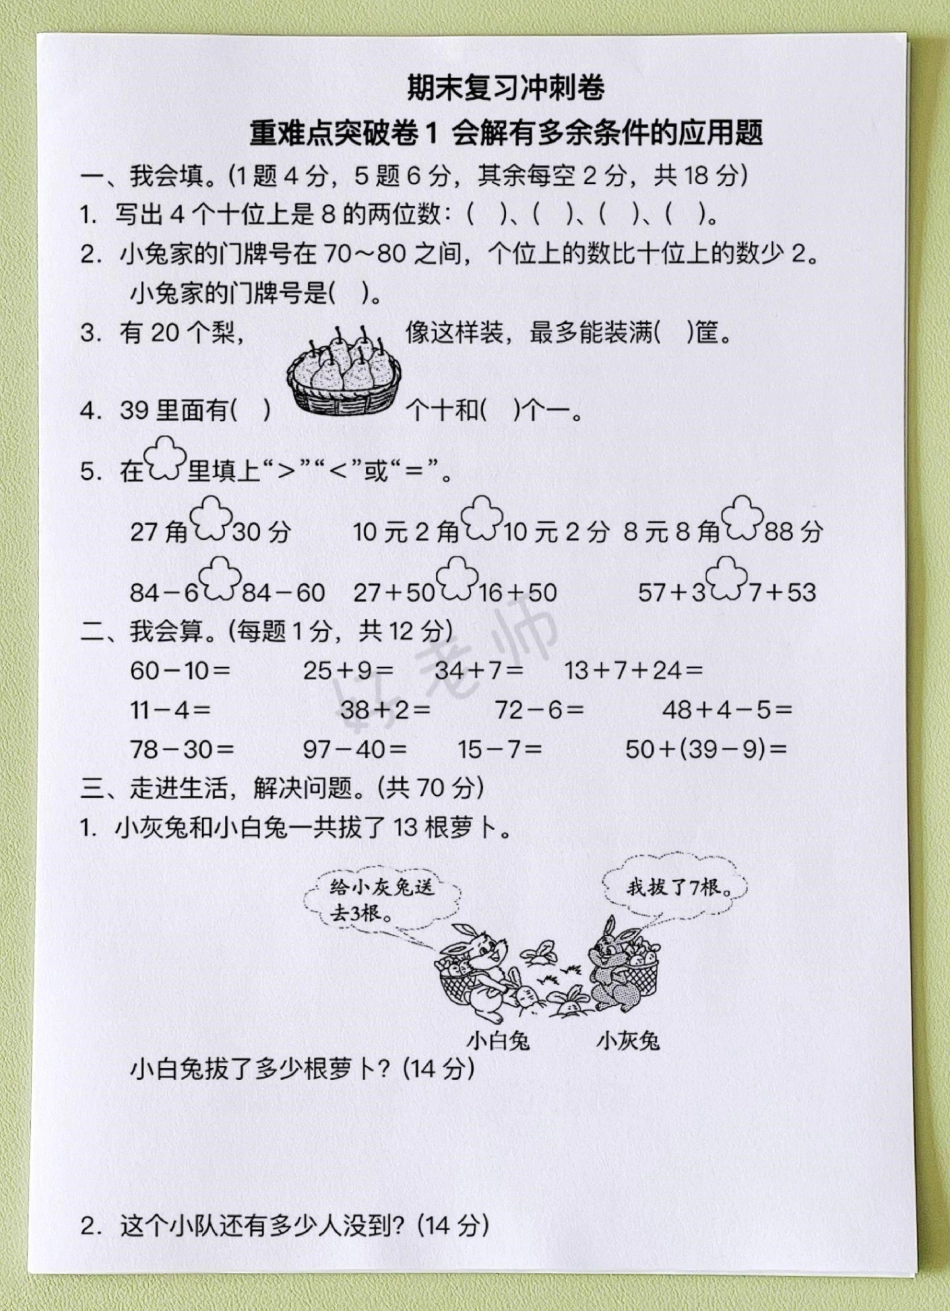 期末复习冲刺卷
重难点突破卷1 会解有多余条件的应用题
一、我会填。(1题4分，5题6分，其余每空2分，共18分)
1. 写出4个十位上是8的两位数：( )、( )、( )、( )。
2. 小兔家的门牌号在70～80之间，个位上的数比十位上的数少2。
小兔家的门牌号是( )。
3. 有20个梨， 像这样装，最多能装满( )筐。
4. 39里面有( ) 个十和( )个一。
5. 在 里填上“＞”“＜”或“＝”。
27角 30分 10元2角 10元2分 8元8角 88分
84－6 84－60 27＋50 16＋50 57＋3 7＋53
二、我会算。(每题1分，共12分)
60－10＝ 25＋9＝ 34＋7＝ 13＋7＋24＝
11－4＝ 38＋2＝ 72－6＝ 48＋4－5＝
78－30＝ 97－40＝ 15－7＝ 50＋(39－9)＝
好老师
三、走进生活，解决问题。(共70分)
1. 小灰兔和小白兔一共拔了13根萝卜。
给小灰兔送
去3根。
我拔了7根。
小白兔 小灰兔
小白兔拔了多少根萝卜？(14分)
2. 这个小队还有多少人没到？(14分)